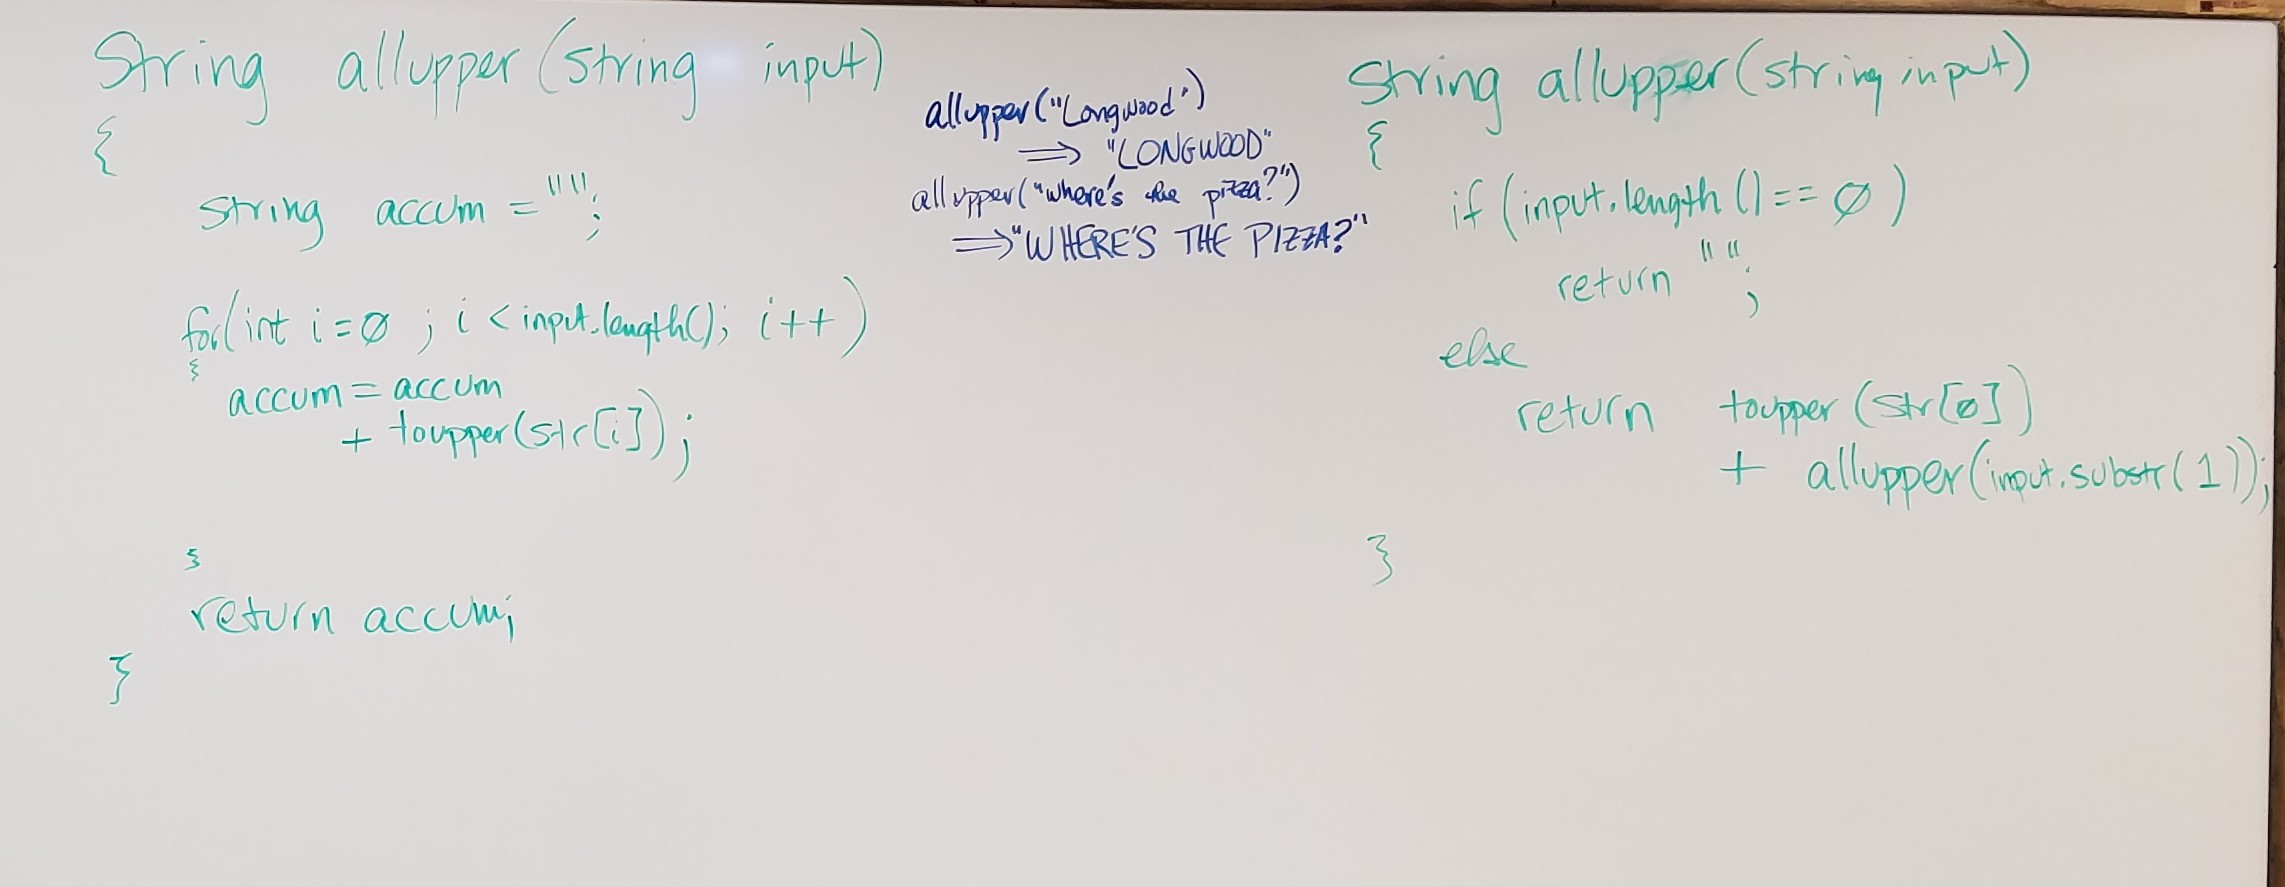 String allupper (string input)
{
string accum = "";
for(int i=0 ; i < input.length(); i++)
{
accum = accum
+ toupper(str[i]);
}
return accum;
}
allupper("Longwood")
⇒ "LONGWOOD"
allupper("where's the pizza?")
⇒ "WHERE'S THE PIZZA?"
String allupper(string input)
{
if (input.length () == 0)
return "";
else
return toupper (str[0])
+ allupper(input.substr(1));
}